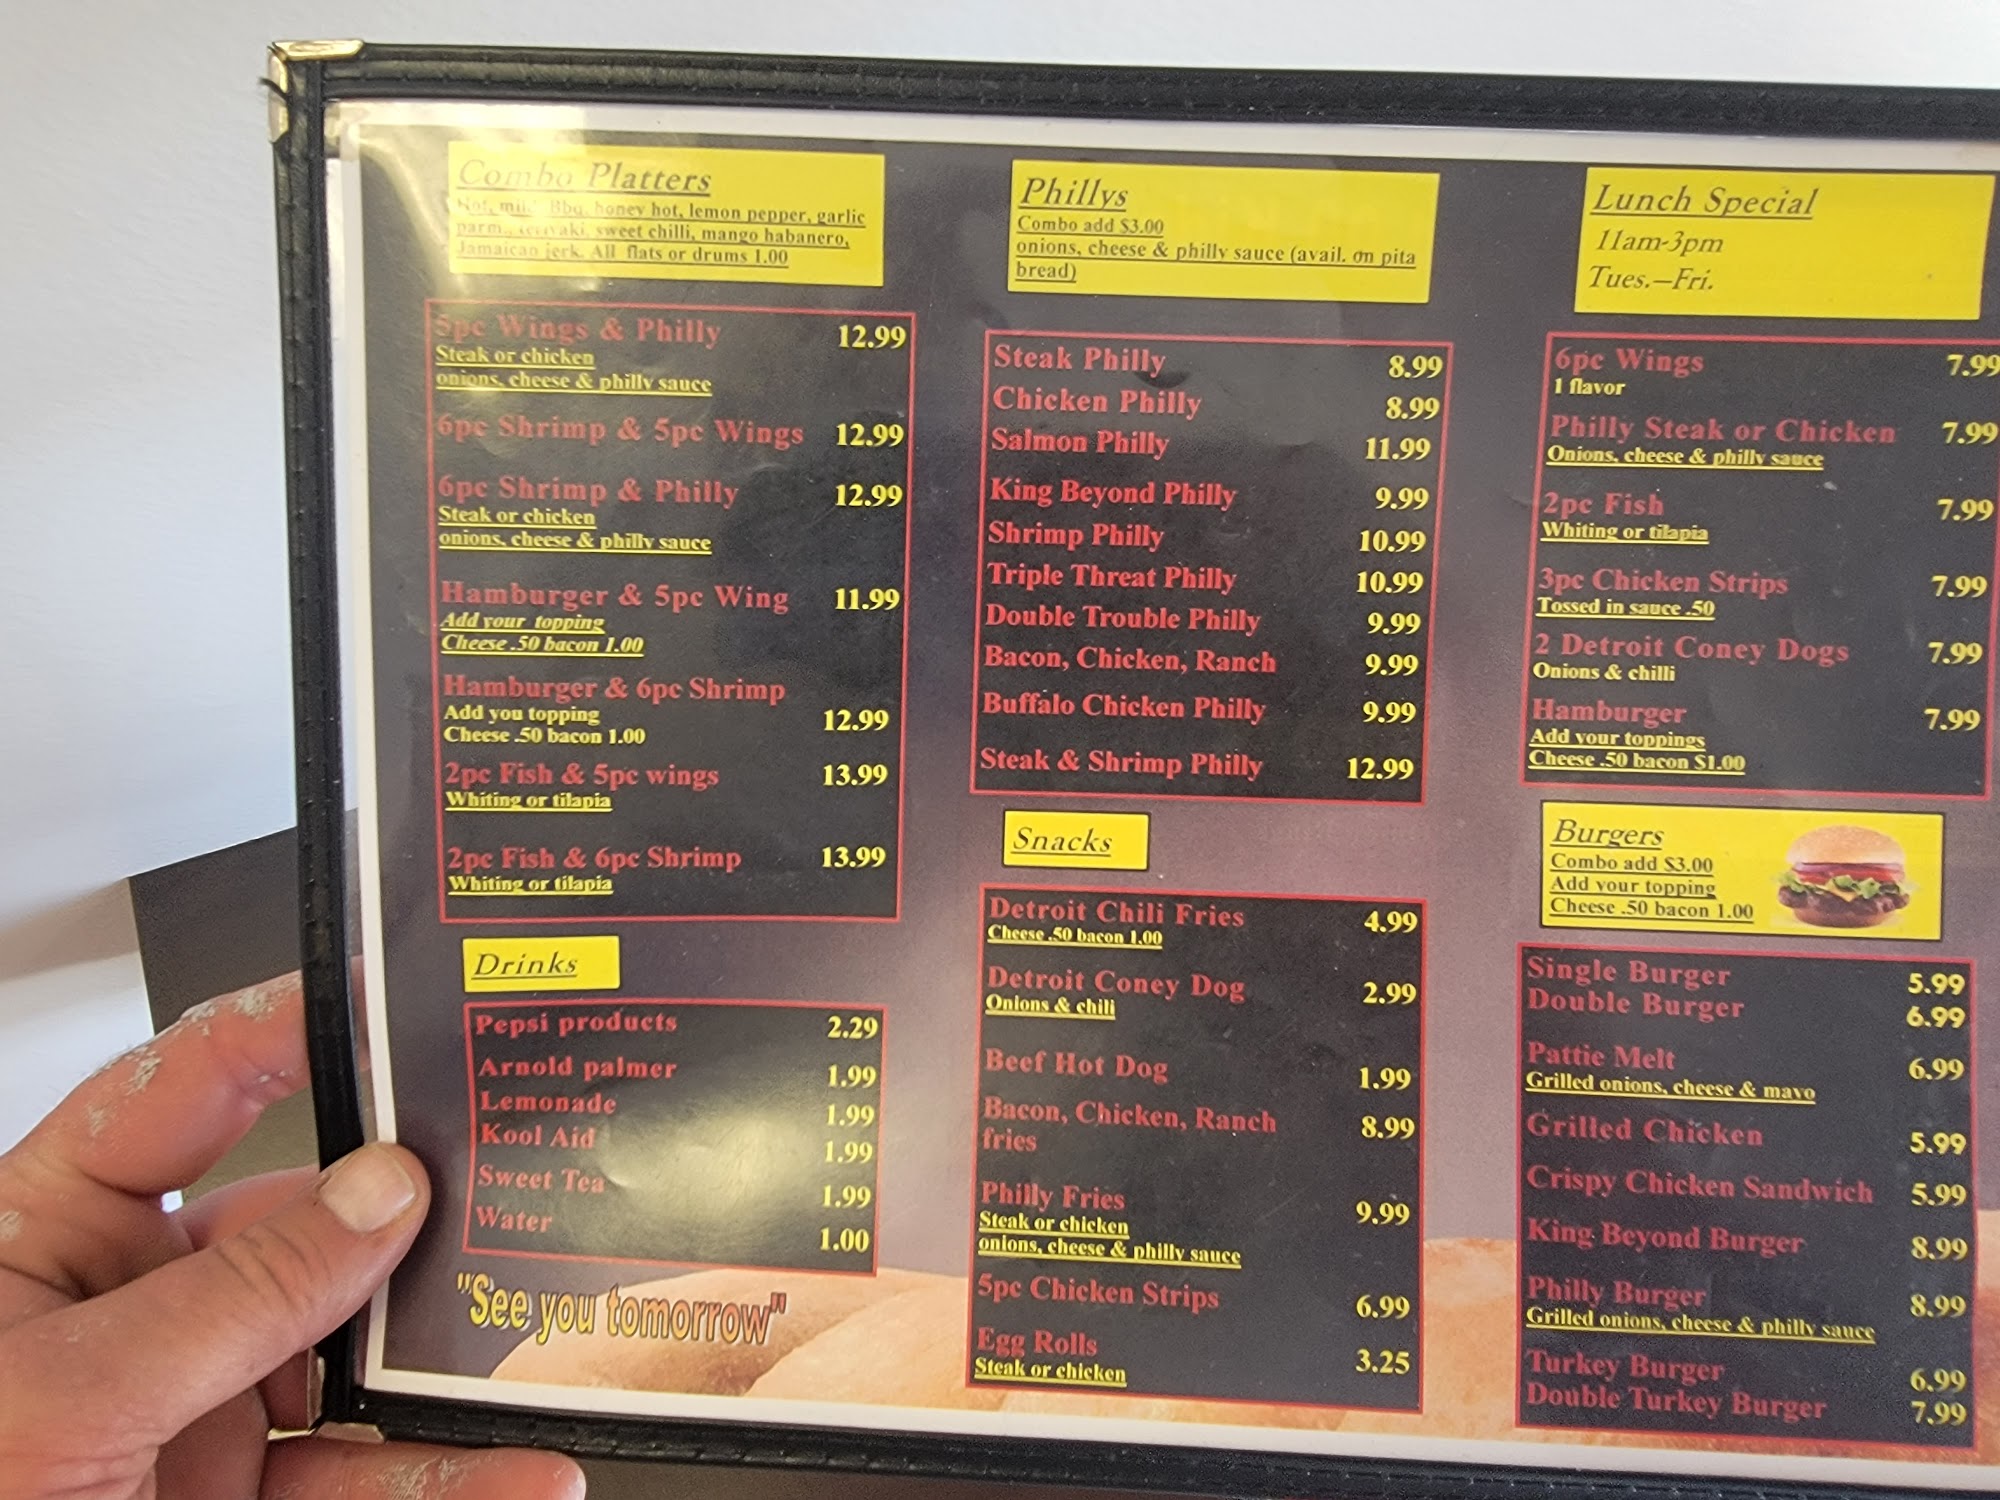 Combo Platters
Hot, mild, Bbq, honey hot, lemon pepper, garlic
parm., teriyaki, sweet chilli, mango habanero,
Jamaican jerk. All flats or drums 1.00
5pc Wings & Philly 12.99
Steak or chicken
onions, cheese & philly sauce
6pc Shrimp & 5pc Wings 12.99
6pc Shrimp & Philly 12.99
Steak or chicken
onions, cheese & philly sauce
Hamburger & 5pc Wing 11.99
Add your topping
Cheese .50 bacon 1.00
Hamburger & 6pc Shrimp
Add you topping 12.99
Cheese .50 bacon 1.00
2pc Fish & 5pc wings 13.99
Whiting or tilapia
2pc Fish & 6pc Shrimp 13.99
Whiting or tilapia
Drinks
Pepsi products 2.29
Arnold palmer 1.99
Lemonade 1.99
Kool Aid 1.99
Sweet Tea 1.99
Water 1.00
"See you tomorrow"
Phillys
Combo add $3.00
onions, cheese & philly sauce (avail. on pita
bread)
Steak Philly 8.99
Chicken Philly 8.99
Salmon Philly 11.99
King Beyond Philly 9.99
Shrimp Philly 10.99
Triple Threat Philly 10.99
Double Trouble Philly 9.99
Bacon, Chicken, Ranch 9.99
Buffalo Chicken Philly 9.99
Steak & Shrimp Philly 12.99
Snacks
Detroit Chili Fries 4.99
Cheese .50 bacon 1.00
Detroit Coney Dog 2.99
Onions & chili
Beef Hot Dog 1.99
Bacon, Chicken, Ranch 8.99
fries
Philly Fries 9.99
Steak or chicken
onions, cheese & philly sauce
5pc Chicken Strips 6.99
Egg Rolls 3.25
Steak or chicken
Lunch Special
11am-3pm
Tues.–Fri.
6pc Wings 7.99
1 flavor
Philly Steak or Chicken 7.99
Onions, cheese & philly sauce
2pc Fish 7.99
Whiting or tilapia
3pc Chicken Strips 7.99
Tossed in sauce .50
2 Detroit Coney Dogs 7.99
Onions & chilli
Hamburger 7.99
Add your toppings
Cheese .50 bacon $1.00
Burgers
Combo add $3.00
Add your topping
Cheese .50 bacon 1.00
Single Burger 5.99
Double Burger 6.99
Pattie Melt 6.99
Grilled onions, cheese & mayo
Grilled Chicken 5.99
Crispy Chicken Sandwich 5.99
King Beyond Burger 8.99
Philly Burger 8.99
Grilled onions, cheese & philly sauce
Turkey Burger 6.99
Double Turkey Burger 7.99